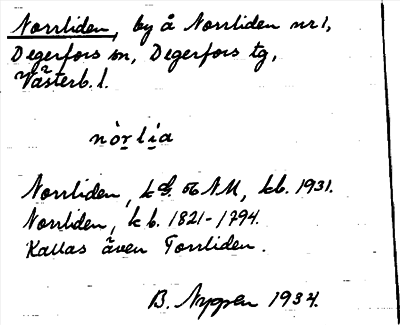 Norrliden, by å Norrliden nr 1,
Degerfors sn, Degerfors tg,
Västerb. l.
nòrlia
Norrliden, k 56 NM, kb. 1931.
Norrliden, kb. 1821-1794.
Kallas även Torrliden.
B. Nygren 1934.